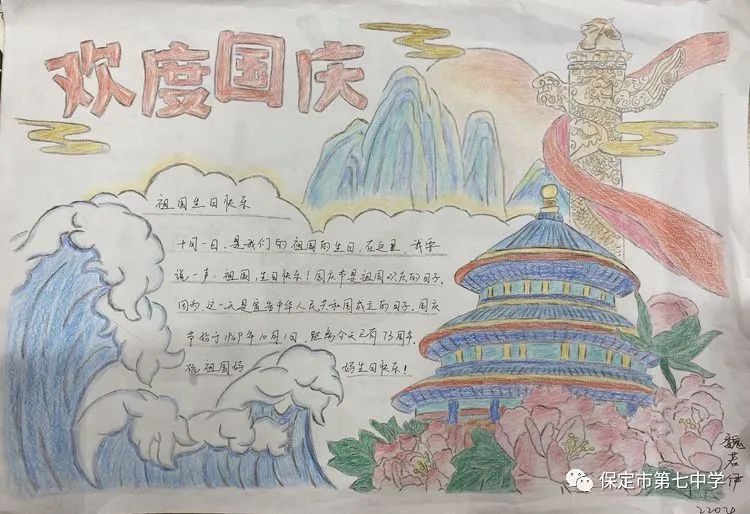 欢度国庆
祖国生日快乐
十月一日,是我们的祖国的生日,在这里,我要
说一声:祖国,生日快乐!国庆节是祖国欢庆的日子,
因为,这一天是宣告中华人民共和国成立的日子。国庆
节始于1949年10月1日,距离今天已有73周年。
祝祖国妈 妈生日快乐!
魏若伊
保定市第七中学